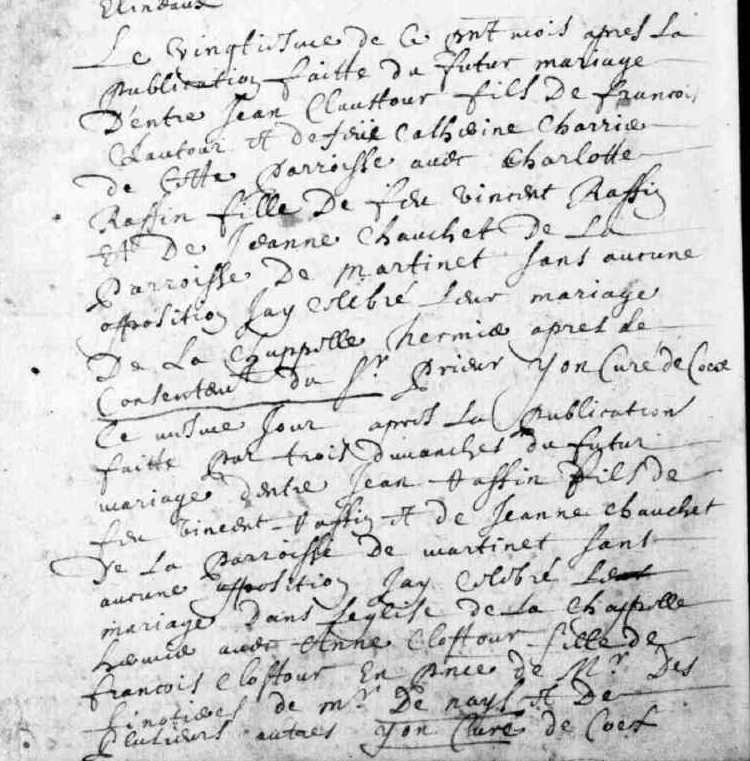 Le vingtiesme de ce pnt mois apres la
publication faitte du futur mariage
D'entre Jean Clauttour fils De francois
Clautour et de feüe Catherine Charrie
de Cette parroisse avec Charlotte
Raffin fille De feu vincent Raffin
Et De Jeanne Chauchet De La
parroisse De martinet sans aucune
opposition Jay Celebré Leur mariage
De La Chappelle hermie apres le
Consentemt du Sr prieur Yon Curé de Coex
Ce mesme Jour apres La publication
faitte par trois dimanches du futur
mariage d'entre Jean Raffin fils de
feu vincent Raffin et de Jeanne Chauchet
de La parroisse de martinet sans
aucune opposition Jay Celebré Leur
mariage dans Leglise de La Chappelle
hermie avec Anne Clottour fille de
francois Clottour En pnce de Mr Des
de mr De nays et De
plusieurs autres Yon Curé de Coex